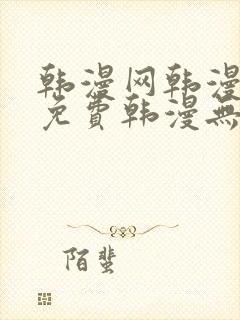 韩漫网韩漫
免費韩漫無
陌蜚